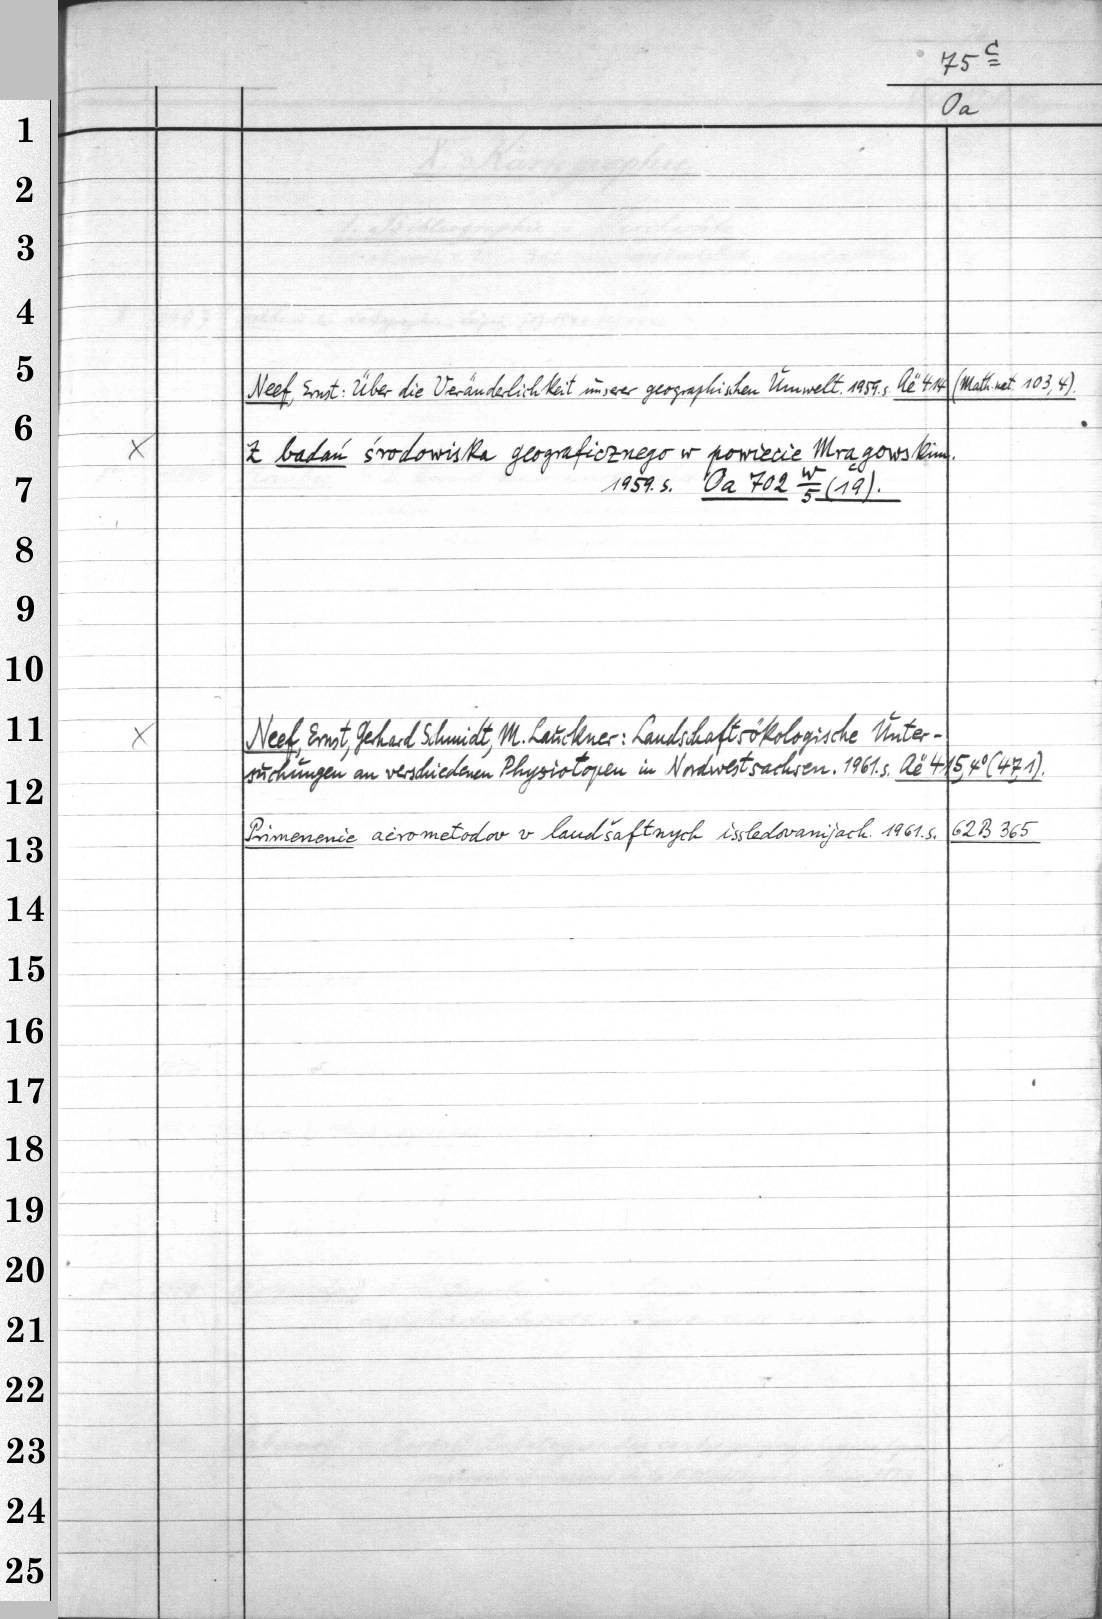 75 c
Oa
1
2
3
4
5
Neef, Ernst: Über die Veränderlichkeit unserer geographischen Umwelt. 1959. s. Aë 414 (Math.nat. 103, 4).
6
x Z badań środowiska geograficznego w powiecie Mrągowskim.
7
1959. s. Oa 702 w/5 (19).
8
9
10
11
x Neef, Ernst, Gerhard Schmidt, M. Lauckner: Landschaftsökologische Unter-
suchungen an verschiedenen Physiotopen in Nordwestsachsen. 1961. s. Aë 415, 4° (47,1).
12
Primenenie aėrometodov v landšaftnych issledovanijach. 1961. s. 62 B 365
13
14
15
16
17
18
19
20
21
22
23
24
25